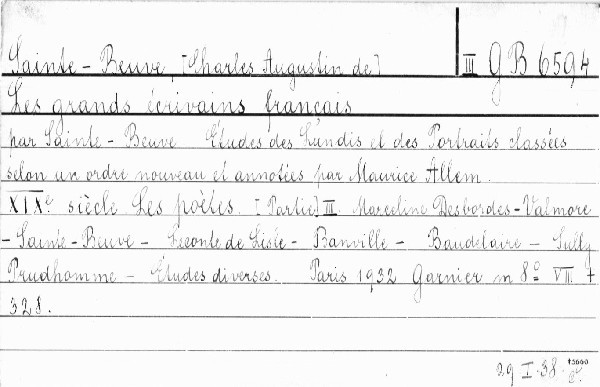 Sainte-Beuve, [Charles Augustin de] III GB 6594
Les grands écrivains français
par Sainte-Beuve Etudes des Lundis et des Portraits classées
selon un ordre nouveau et annotées par Maurice Allem.
XIXe siècle Les poètes. [Partie] III. Marceline Desbordes-Valmore
- Sainte-Beuve - Leconte de Lisle - Banville - Baudelaire - Sully
Prudhomme - Etudes diverses. Paris 1932 Garnier m 8° VII. +
328.
29 I. 38.